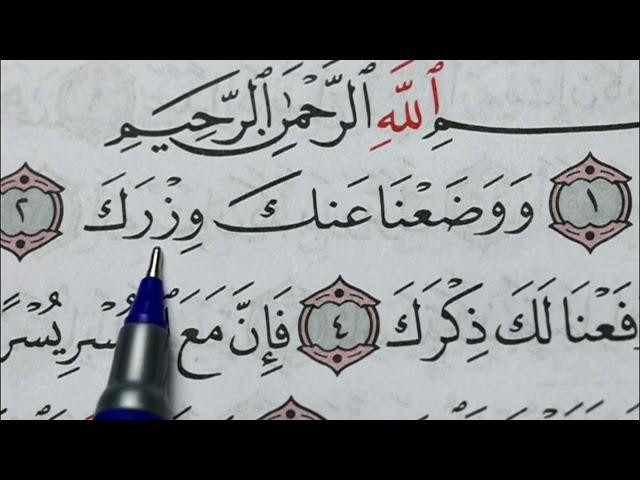 ـسمِ ٱللَّهِ ٱلرَّحْمَٰنِ ٱلرَّحِيمِ
١ وَوَضَعْنَا عَنكَ وِزْرَكَ ٢
فَعْنَا لَكَ ذِكْرَكَ ٤ فَإِنَّ مَعَ ٱلْعُسْرِ يُسْرًا